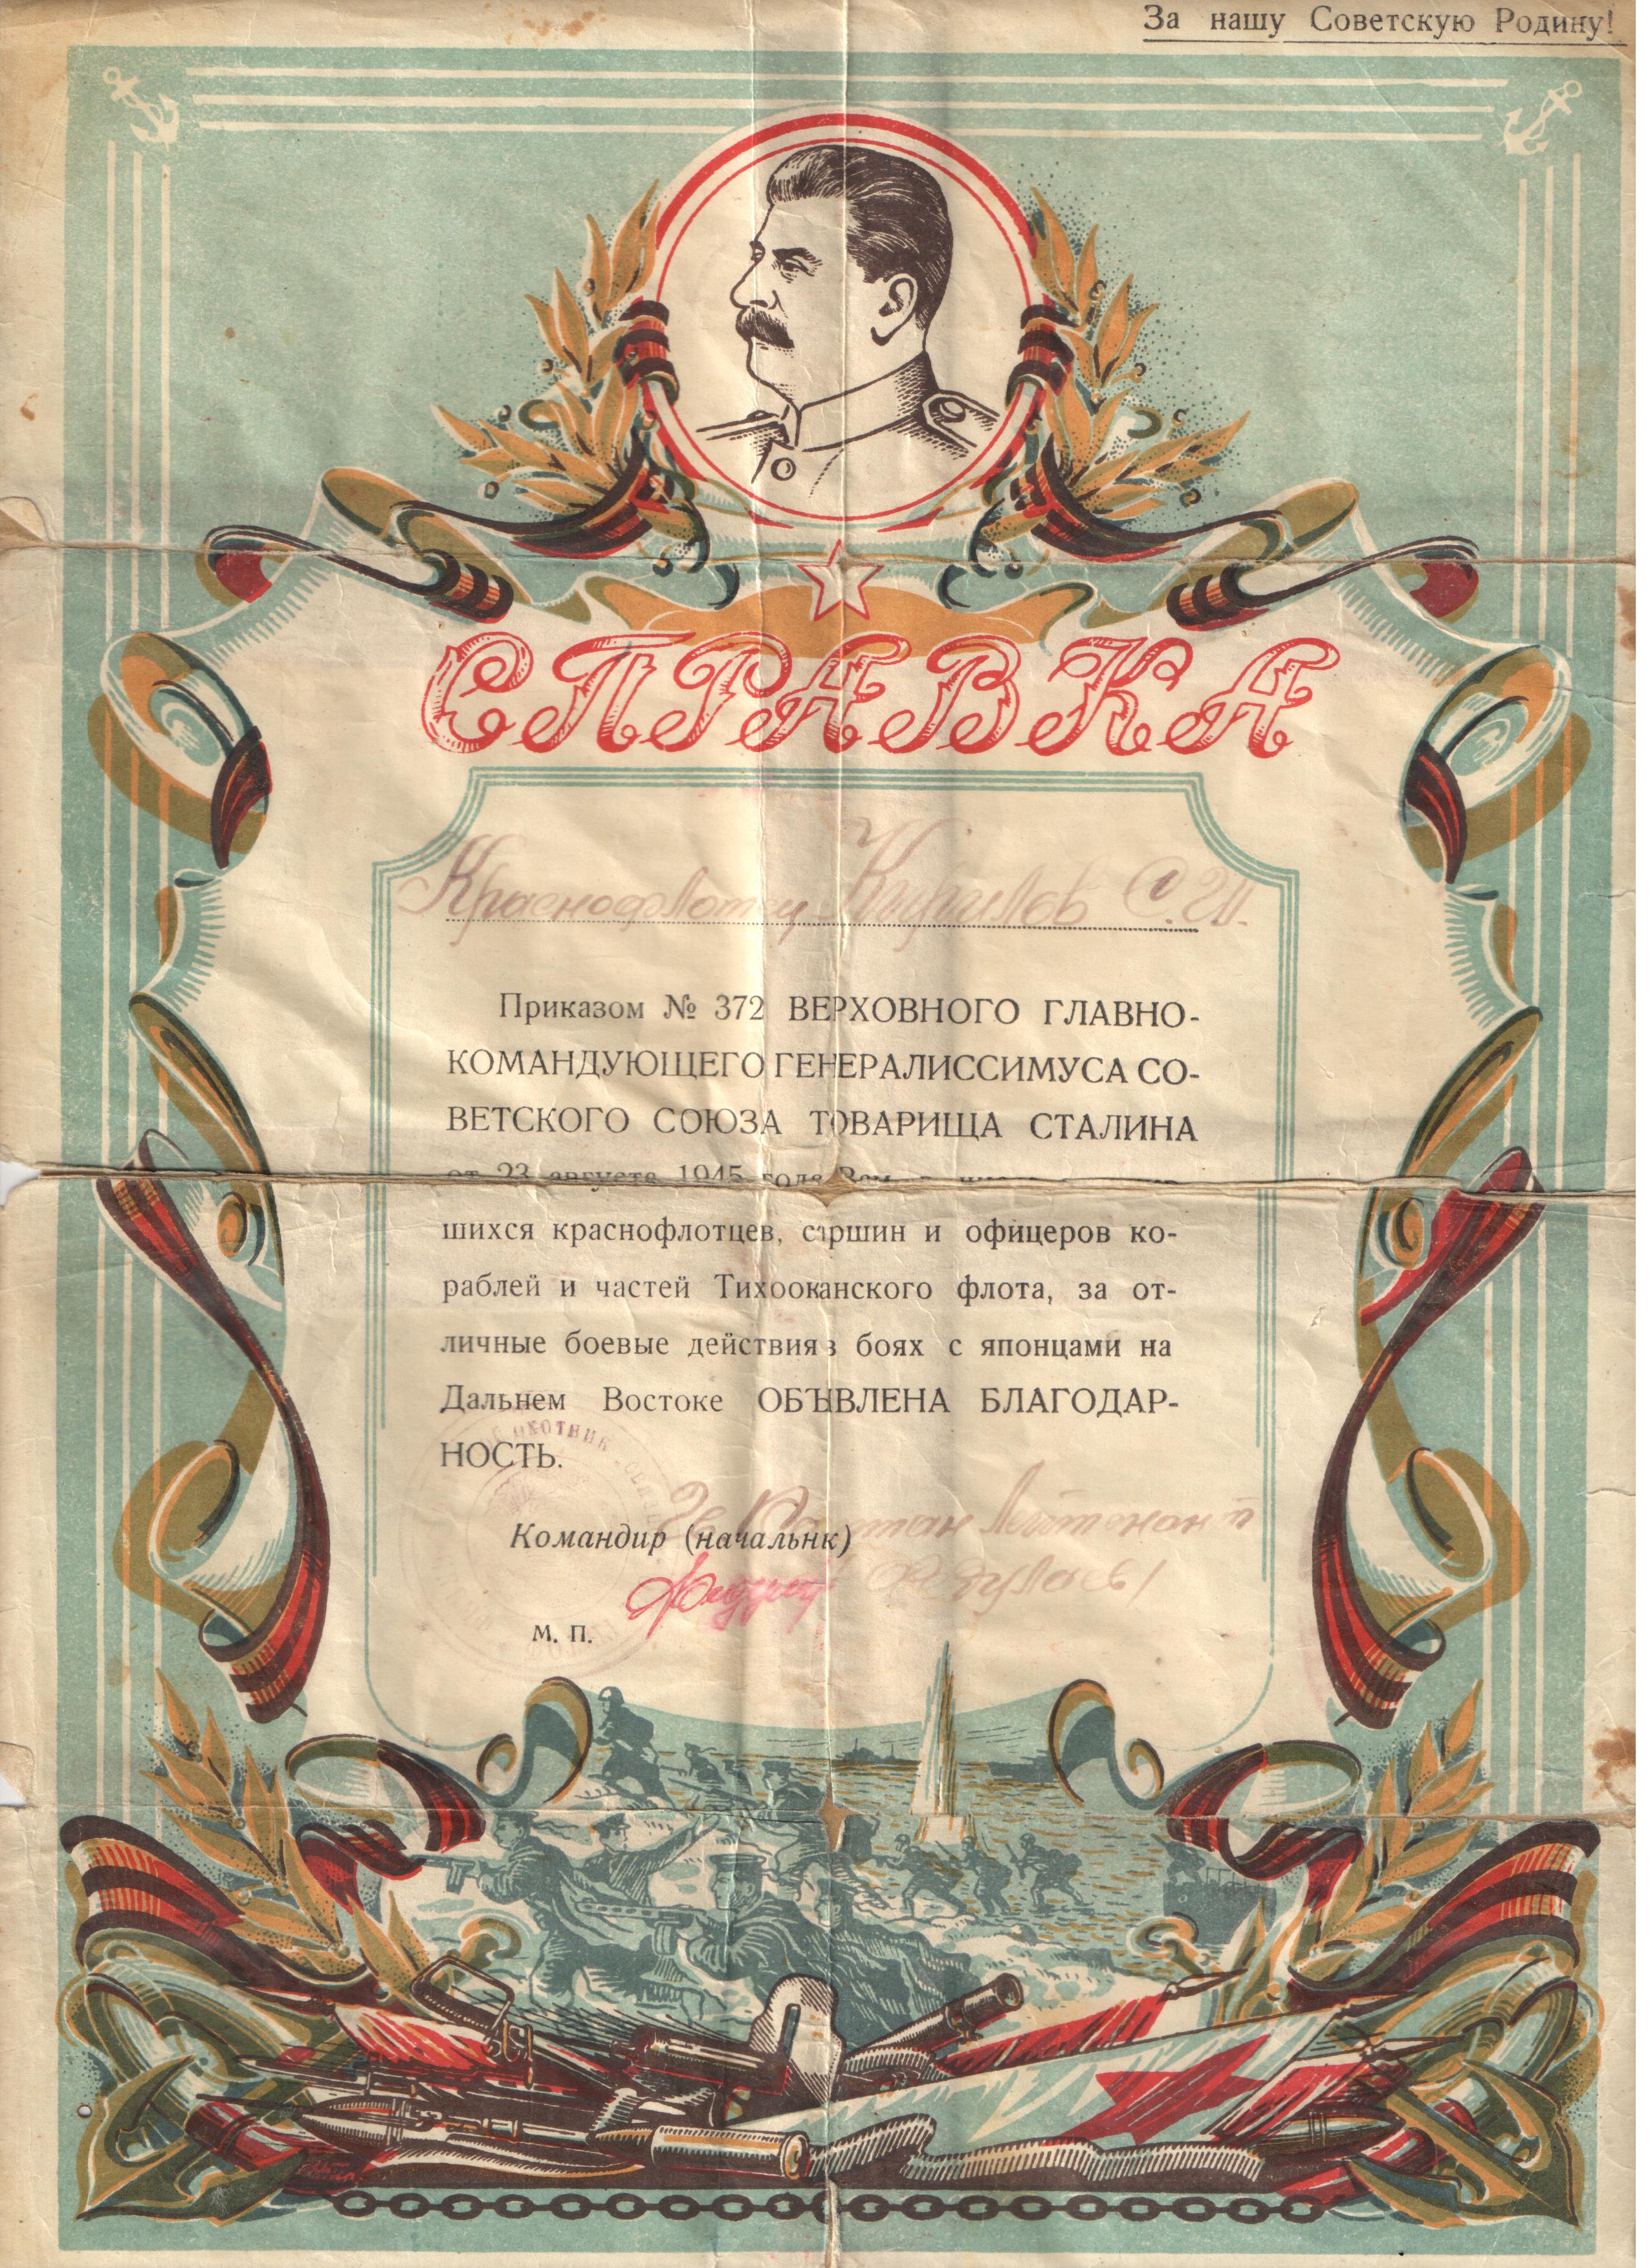 За нашу Советскую Родину!
СПРАВКА
Краснофлотец Кирилов С.
Приказом № 372 ВЕРХОВНОГО ГЛАВНО-
КОМАНДУЮЩЕГО ГЕНЕРАЛИССИМУСА СО-
ВЕТСКОГО СОЮЗА ТОВАРИЩА СТАЛИНА
от 23 августа 1945 года Вам, в числе
шихся краснофлотцев, старшин и офицеров ко-
раблей и частей Тихоокеанского флота, за от-
личные боевые действия в боях с японцами на
Дальнем Востоке ОБЪЯВЛЕНА БЛАГОДАР-
НОСТЬ.
ОХОТНИК
Командир (начальнк) Капитан Лейтенант
М. П.